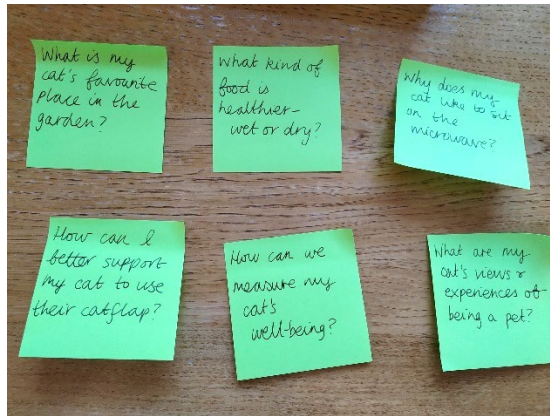 What is my
cat's favourite
place in the
garden?
What kind of
food is
healthier-
wet or dry?
Why does my
cat like to sit
on the
microwave?
How can I
better support
my cat to use
their catflap?
How can we
measure my
cat's
well-being?
What are my
cat's views &
experiences of
being a pet?